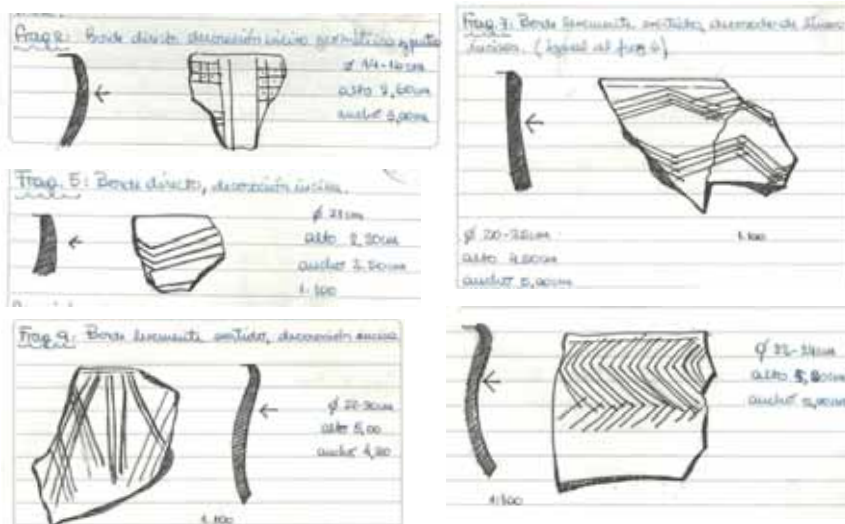 Frag 8: Borde directo decoración incisa geométrica
ø 14-16cm
alto 2,60cm
ancho 3,00cm
Frag. 5: Borde directo, decoración incisa.
ø 21cm
alto 2,20cm
ancho 2,50cm
1:100
Frag 9: Borde levemente evertido, decoración incisa
ø 22-30cm
alto 5,00
ancho 4,20
1:100
Frag. 7: Borde levemente evertido, decorado de líneas
incisas. (igual al frag 6)
ø 20-22cm
alto 4,20cm
ancho 5,00cm
1:100
ø 22-24cm
alto 5,20cm
ancho 5,00cm
1:100